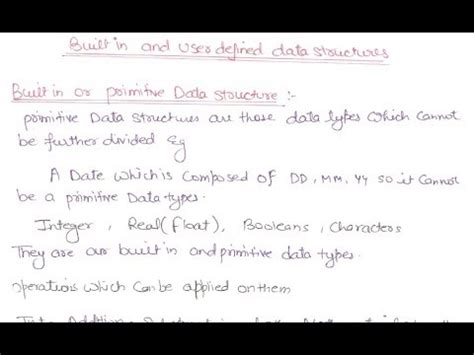 Built in and user defined data structures
Built in or primitive Data Structure :-
primitive Data structures are those data types which cannot
be further divided Eg
A Date which is composed of DD, MM, YY so it cannot
be a primitive Data types.
Integer, Real (float), Booleans, Characters
They are our built in and primitive data types.
operations which can be applied on them